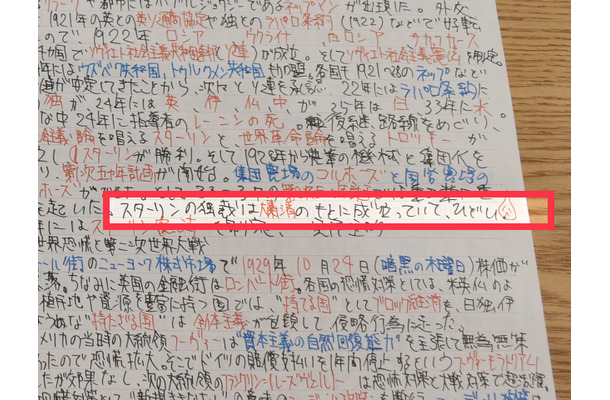 1921年の英との英ソ通商協定や独とのラパロ条約(1922)などで好転
ので1922年 ロシア ウクライナ ベロロシア ザカフカース
カ国でソヴィエト社会主義共和国連邦(ソ連)が成立、そしてソヴィエト社会主義憲法を制定。
年にはウズベク共和国、トゥルクメン共和国も加盟。各国も1921〜28のネップなど
が安定してきたことから、次々とソ連を承認。22年にはラパロ条約に
独が24年には英 伊 仏 中が 25年は日 33年に米
な中24年に指導者のレーニンの死。後継、路線をめぐり、
主義論を唱えるスターリンと、世界革命論を唱えるトロツキーが
し、スターリンが勝利。そして1928年から農業の機械化と集団化を
第一次五カ年計画が開始。集団農場のコルホーズと国営農場の
ホーズが
を起こいた、スターリンの独裁は粛清のもとに成り立っていて、ひどい
年にはスターリン
世界恐慌と第二次世界大戦
ール街のニューヨーク株式市場で1929年10月24日(暗黒の木曜日)株価が
落。ちなみに英国の金融街はロンバート街。各国の恐慌対策としては、米英仏のよ
植民地や資源を豊富に持つ国では、"持てる国"としてブロック経済を、日独伊
うな"持たざる国"は全体主義が台頭して侵略行為に走った。
メリカの当時の大統領フーヴァーは"資本主義の自然回復能力"を主張して無為無策
ったので恐慌拡大。そこでドイツの賠償支払いを1年間停止するというフーヴァーモラトリアム
たが効果なし、次の大統領のフランクリン=ルーズヴェルトは恐慌対策と大戦対策で超活躍。